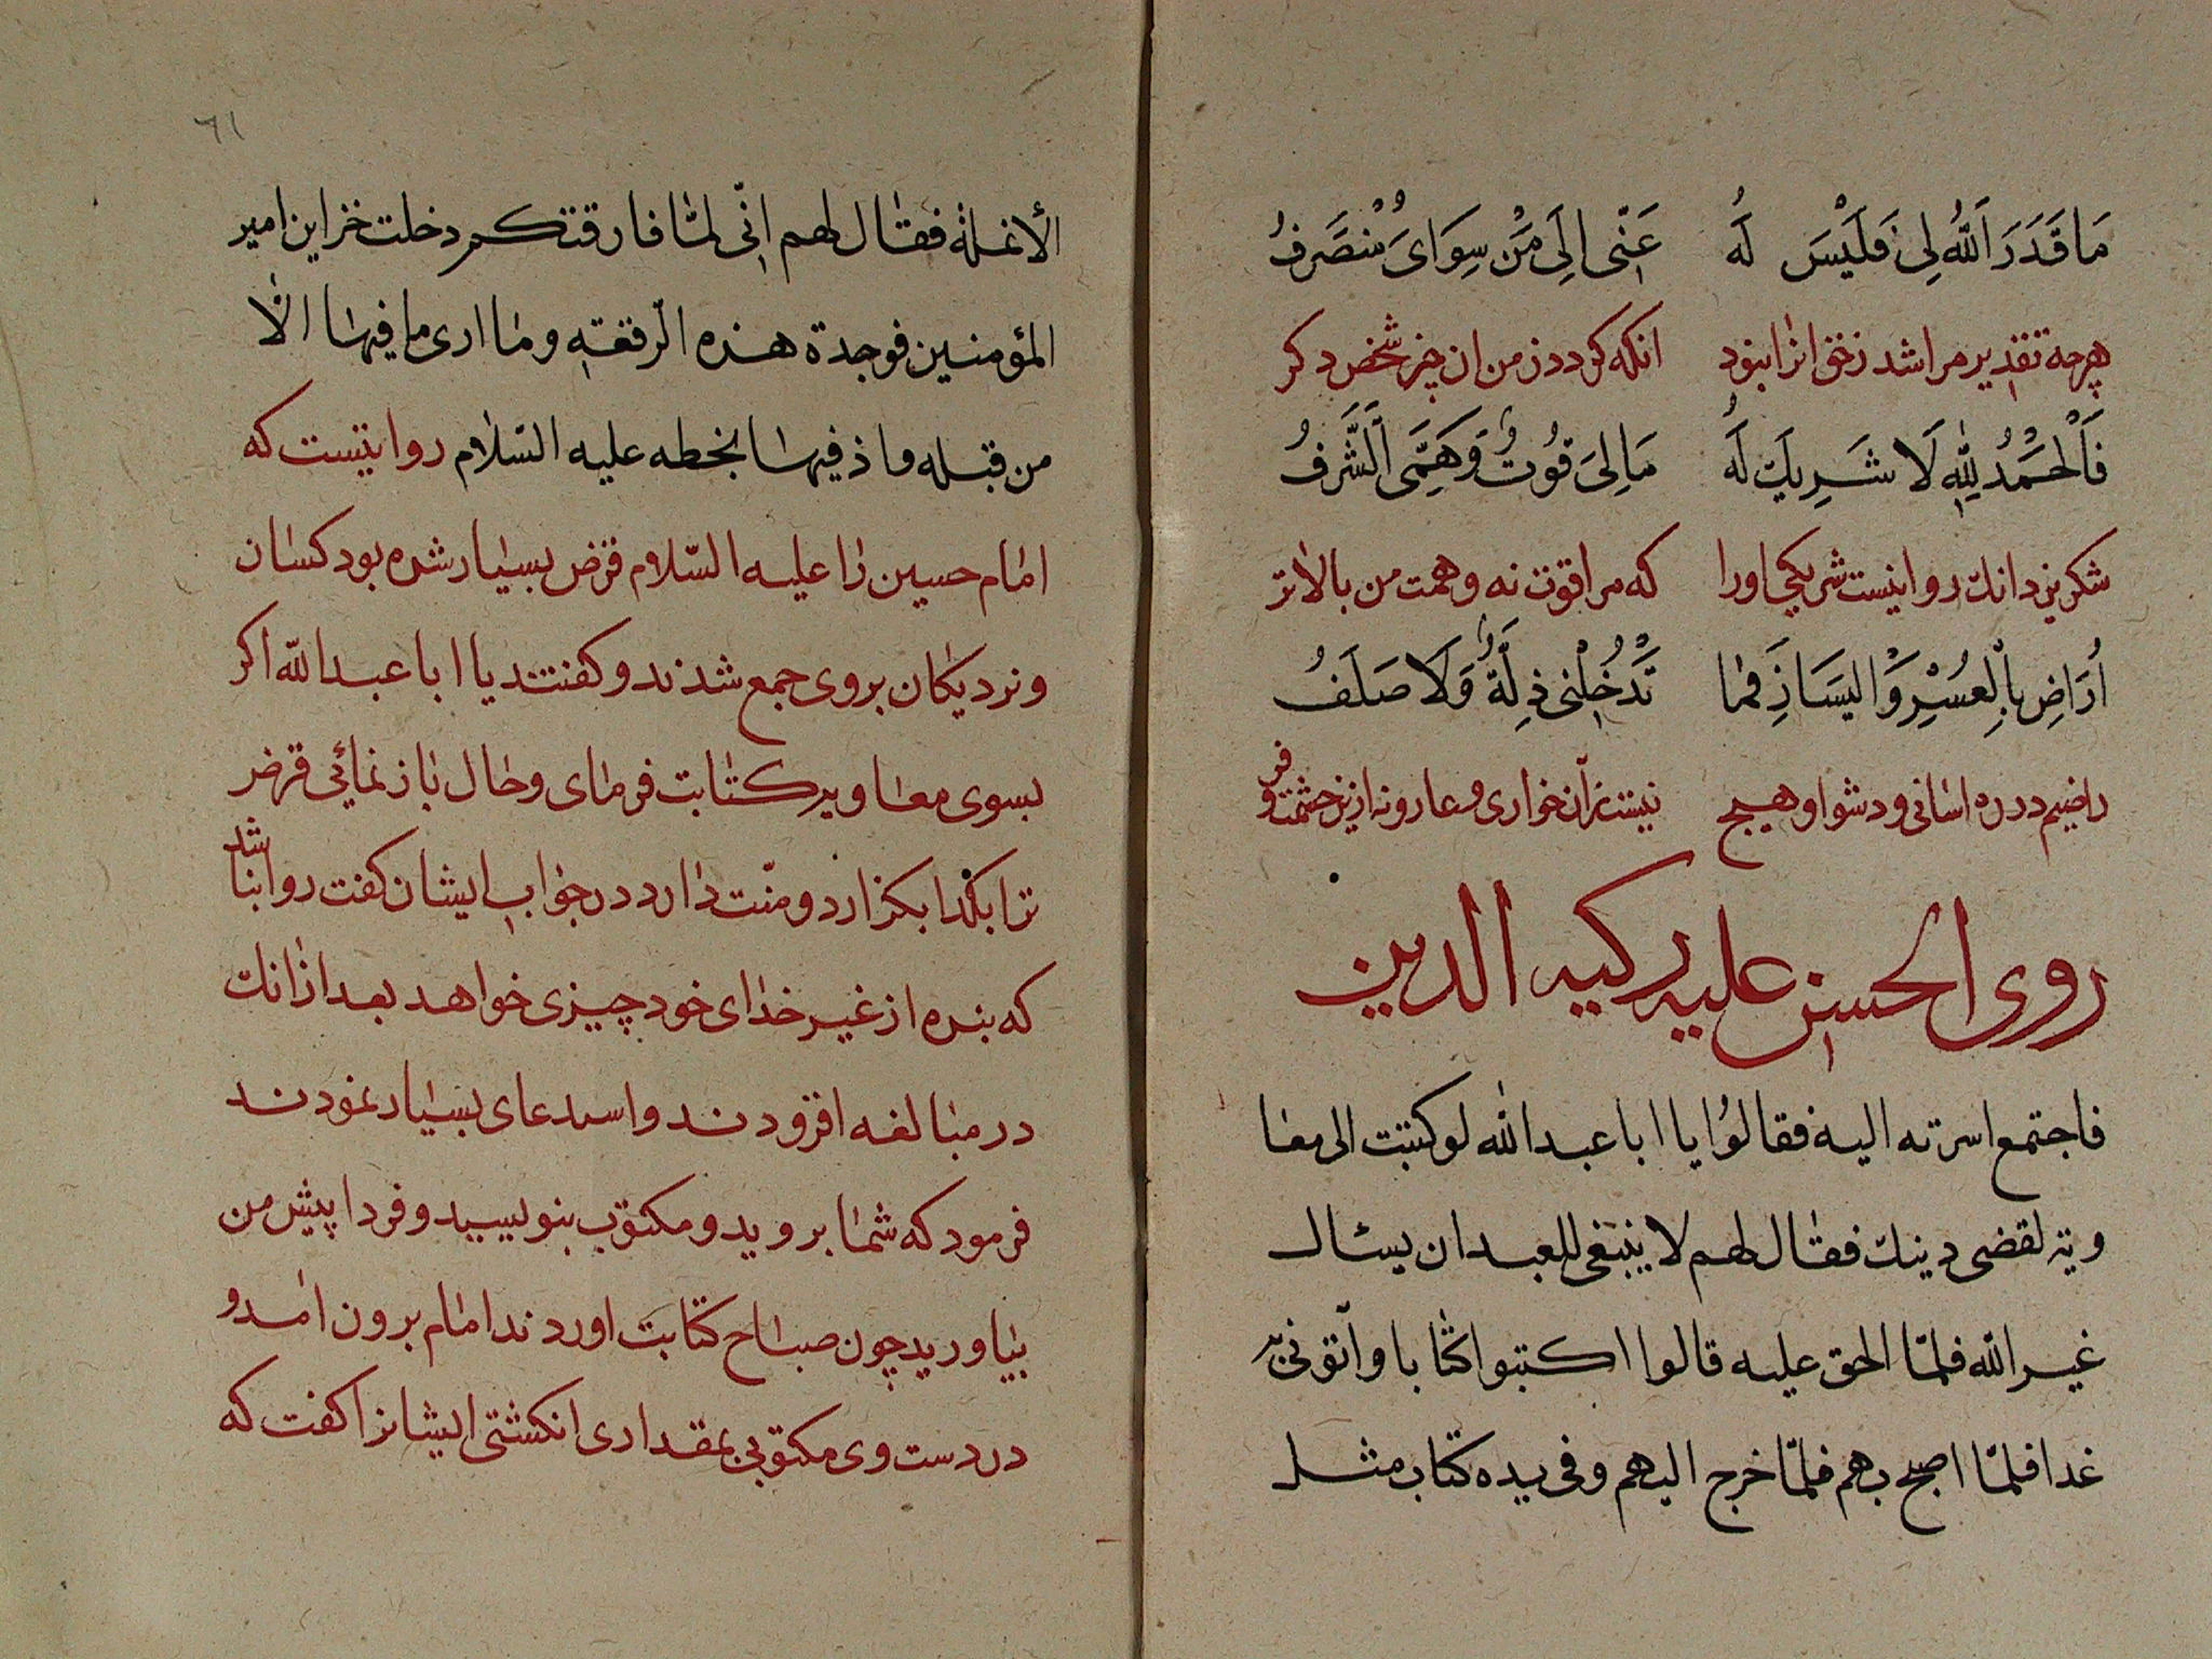 مَا قَدَرَ اَللّٰهُ لِی فَلَیْسَ لَهُ عَنّی اِلَی مَنْ سِوَایَ مُنْصَرِفُ
هرچه تقدیر مرا شد زختی انرا نبود انکه کردد زمن ان چیز شخص دکر
فَاَلْحَمْدُ لِلّٰهِ لَا شَرِیكَ لَهُ مَا لِیَ قُوتُ وَهَمِّتَی اَلشَّرَفُ
شکر یزدانك روا نیست شریکی اورا که مرا قوت نه وهمت من بالاتر
اُرَاضِ بِالْعُسْرِ وَالیَسَارِ فَمٰا تَدْخُلْنی ذِلَّةُ وَلَا صَلَفُ
راضیم در ره اسانی ودشوا وهیچ نیست زان خواری وعار ونه ازین حشمت وفر
روی الحسن علیه رکیه الدین
فاجتمع اسرته الیه فقالوُا یا ابا عبد اللّٰه لو کتبت الی معا
ویة لقضی دینك فقال لهم لا ینبغی للعبد ان یسئال
غیر اللّٰه فلمّا الحق علیه قالوا اکتبوا کتابا واتونی به
غدا فلمّا اصبح بهم فلمّا خرج الیهم وفی یده کتاب مثل
٦١
الأنملة فقال لهم انّی لمّا فارقتکم دخلت خزاین امیر
المؤمنین فوجدة هذه الرقعة وما اری ما فیها الّا
من قبله وما ذ فیها بخطه علیه السّلام روایتست که
امام حسین را علیه السّلام قرض بسیار شده بود کسان
ونزدیکان بروی جمع شدند وکفتند یا ابا عبد اللّٰه اکر
بسوی معاویه کتابت فرمای وحال باز نمائی قرض
ترا بکذا بکزارد ومنّت دارد در جواب ایشان کفت روا نباشد
که بنده از غیر خدای خود چیزی خواهد بعد ازانك
در مبالغه افزودند واسدعای بسیار نمودند
فرمود که شما بروید ومکتوب بنویسید وفردا پیش من
بیاورید چون صباح کتابت اوردند امام برون امد و
در دست وی مکتوبی بمقداری انکشتی ایشانرا کفت که